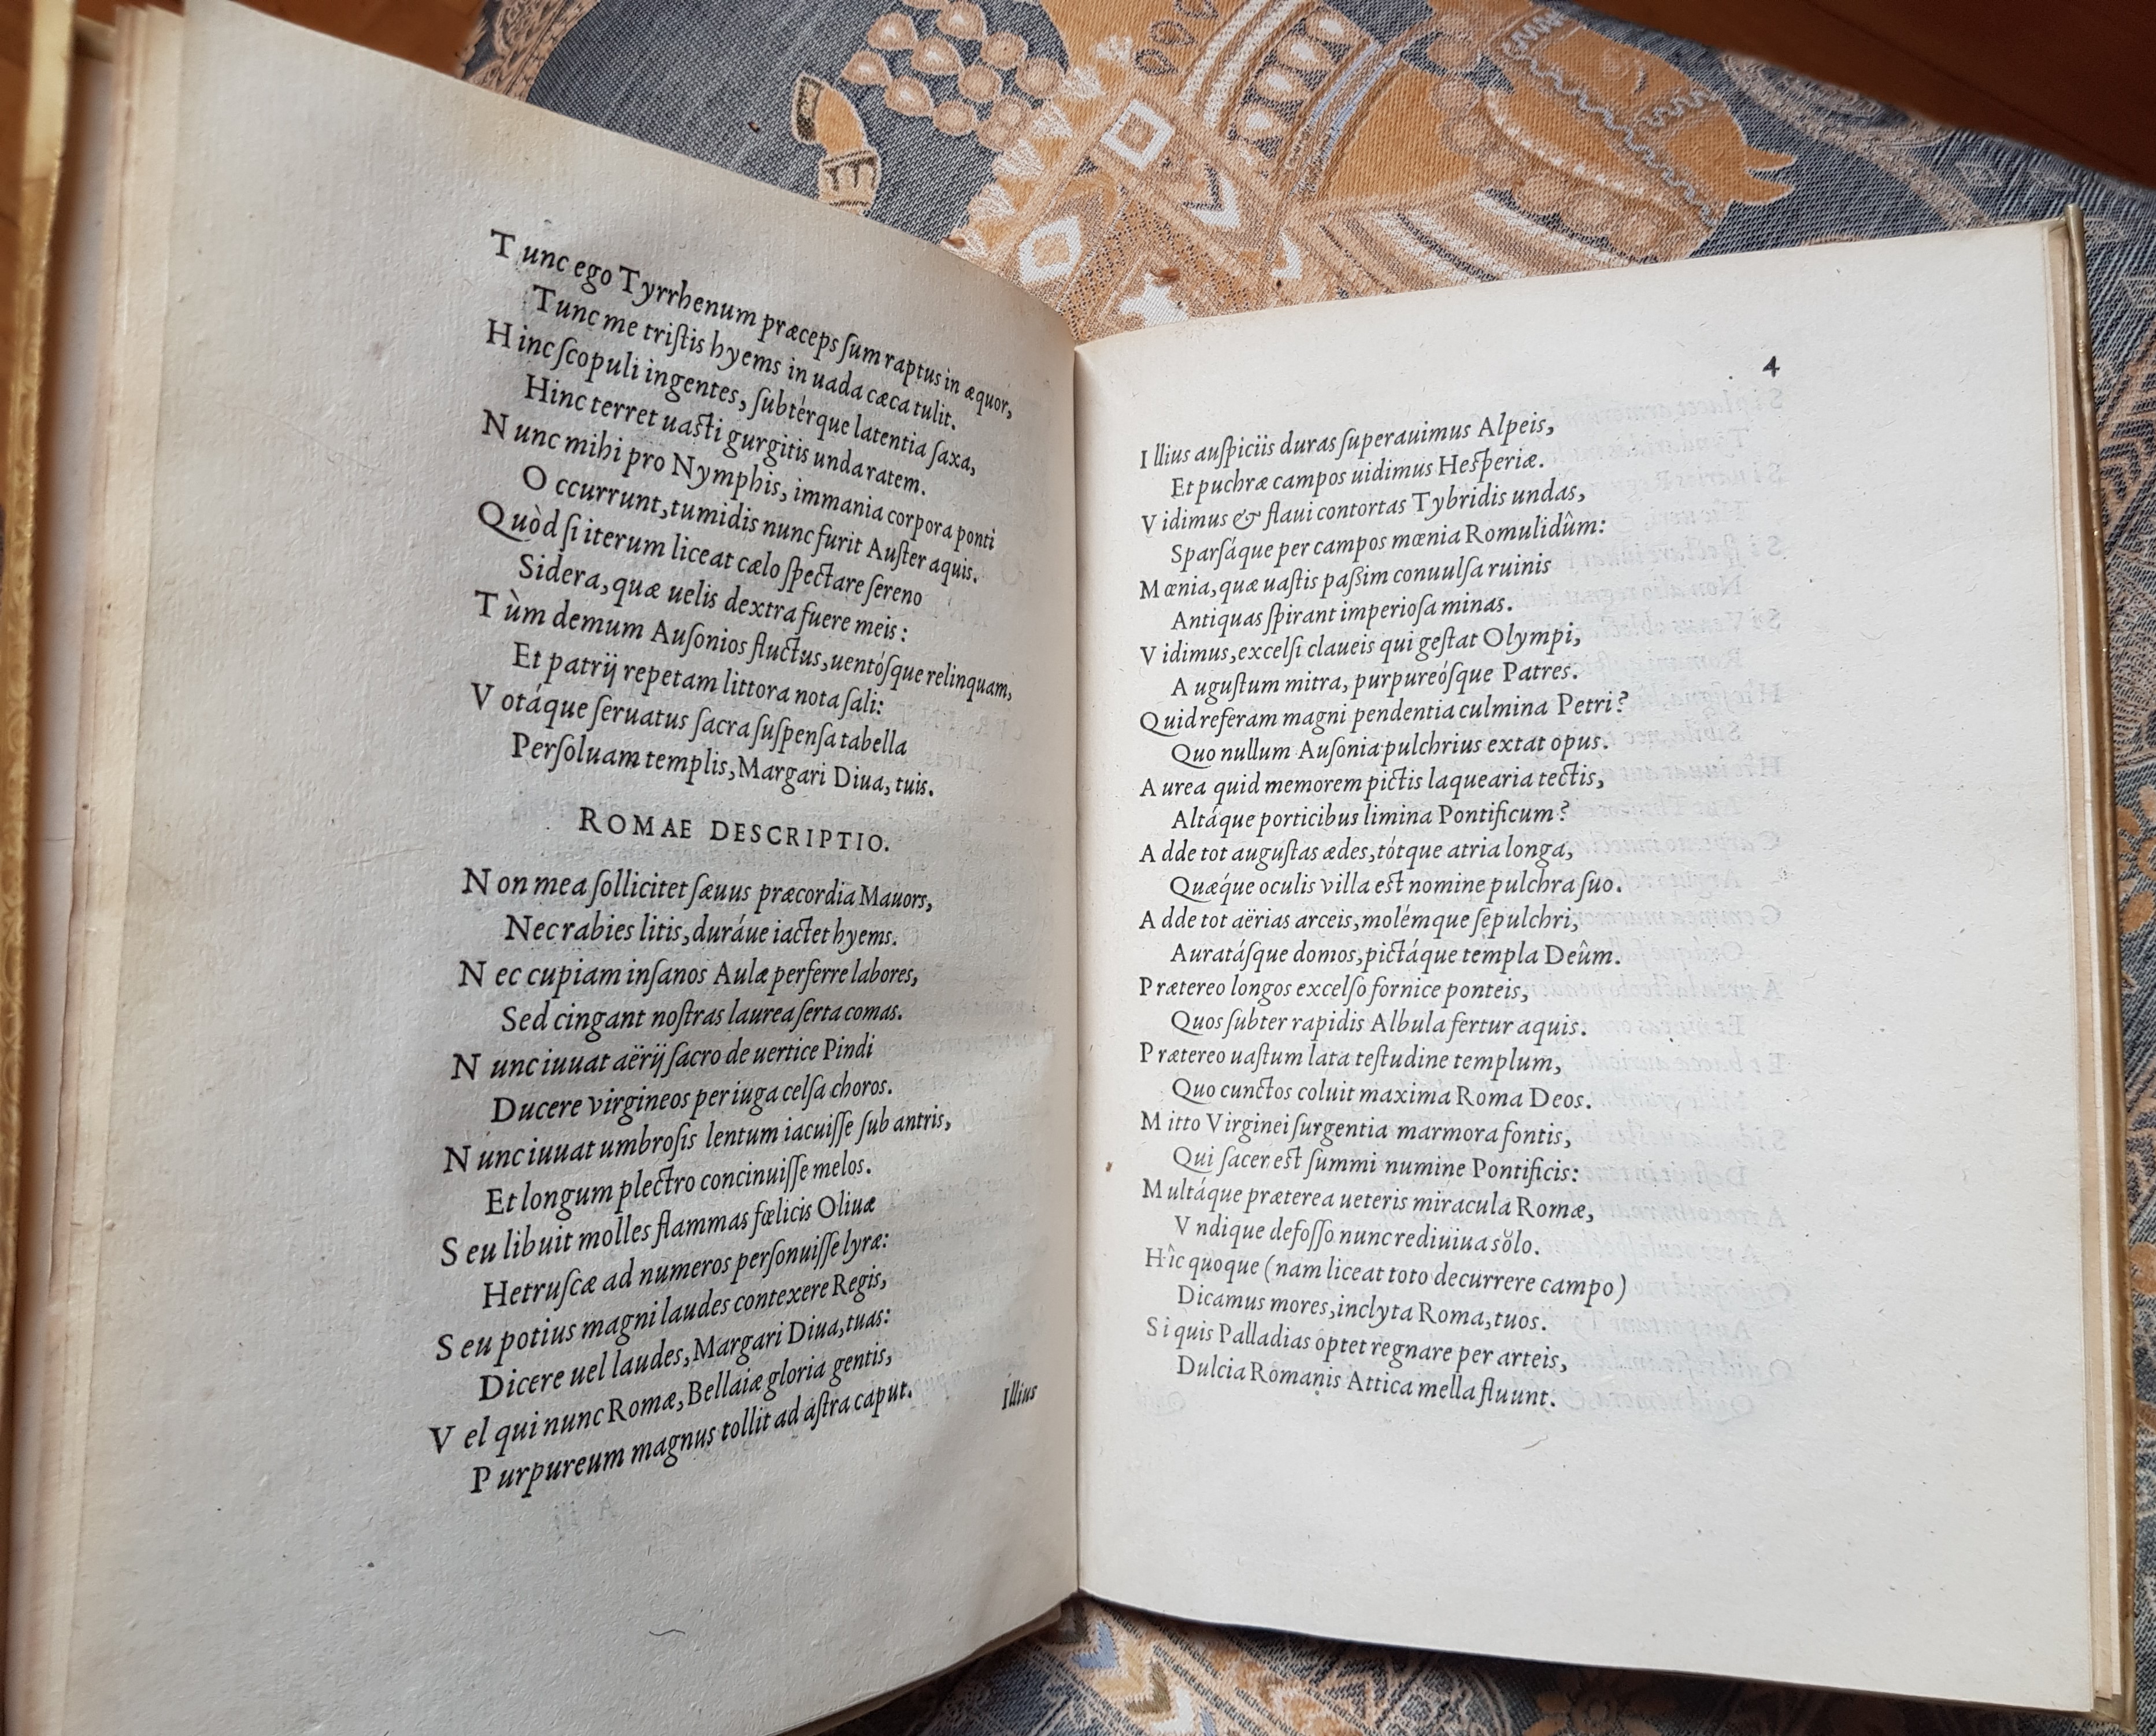 Tunc ego Tyrrhenum præceps ſum raptus in æquor,
Tunc me triſtis hyems in uada cæca tulit.
Hinc ſcopuli ingentes, ſubtérque latentia ſaxa,
Hinc terret uaſti gurgitis unda ratem.
Nunc mihi pro Nymphis, immania corpora ponti
Occurrunt, tumidis nunc furit Auſter aquis.
Quòd ſi iterum liceat cælo ſpectare ſereno
Sidera, quæ uelis dextra fuere meis:
Tùm demum Auſonios fluctus, uentóſque relinquam,
Et patrij repetam littora nota ſali:
Votáque ſeruatus ſacra ſuſpenſa tabella
Perſoluam templis, Margari Diua, tuis.
ROMAE DESCRIPTIO.
Non mea ſollicitet ſæuus præcordia Mauors,
Nec rabies litis, duráue iactet hyems.
Nec cupiam inſanos Aulæ perferre labores,
Sed cingant noſtras laurea ſerta comas.
Nunc iuuat aërij ſacro de uertice Pindi
Ducere virgineos per iuga celſa choros.
Nunc iuuat umbroſis lentum iacuiſſe ſub antris,
Et longum plectro concinuiſſe melos.
Seu libuit molles flammas fœlicis Oliuæ
Hetruſcæ ad numeros perſonuiſſe lyræ:
Seu potius magni laudes contexere Regis,
Dicere uel laudes, Margari Diua, tuas:
Vel qui nunc Romæ, Bellaiæ gloria gentis,
Purpureum magnus tollit ad aſtra caput.
Illius
4
Illius auſpiciis duras ſuperauimus Alpeis,
Et puchræ campos uidimus Heſperiæ.
Vidimus & flaui contortas Tybridis undas,
Sparſáque per campos mœnia Romulidûm:
Mœnia, quæ uaſtis paßim conuulſa ruinis
Antiquas ſpirant imperioſa minas.
Vidimus, excelſi claueis qui geſtat Olympi,
Auguſtum mitra, purpureóſque Patres.
Quid referam magni pendentia culmina Petri?
Quo nullum Auſonia pulchrius extat opus.
Aurea quid memorem pictis laquearia tectis,
Altáque porticibus limina Pontificum?
Adde tot auguſtas ædes, tótque atria longa,
Quæque oculis villa eſt nomine pulchra ſuo.
Adde tot aërias arceis, molémque ſepulchri,
Auratáſque domos, pictáque templa Deûm.
Prætereo longos excelſo fornice ponteis,
Quos ſubter rapidis Albula fertur aquis.
Prætereo uaſtum lata teſtudine templum,
Quo cunctos coluit maxima Roma Deos.
Mitto Virginei ſurgentia marmora fontis,
Qui ſacer eſt ſummi numine Pontificis:
Multáque præterea ueteris miracula Romæ,
Vndique defoſſo nunc rediuiua sŏlo.
Hîc quoque (nam liceat toto decurrere campo)
Dicamus mores, inclyta Roma, tuos.
Si quis Palladias optet regnare per arteis,
Dulcia Romanis Attica mella fluunt.